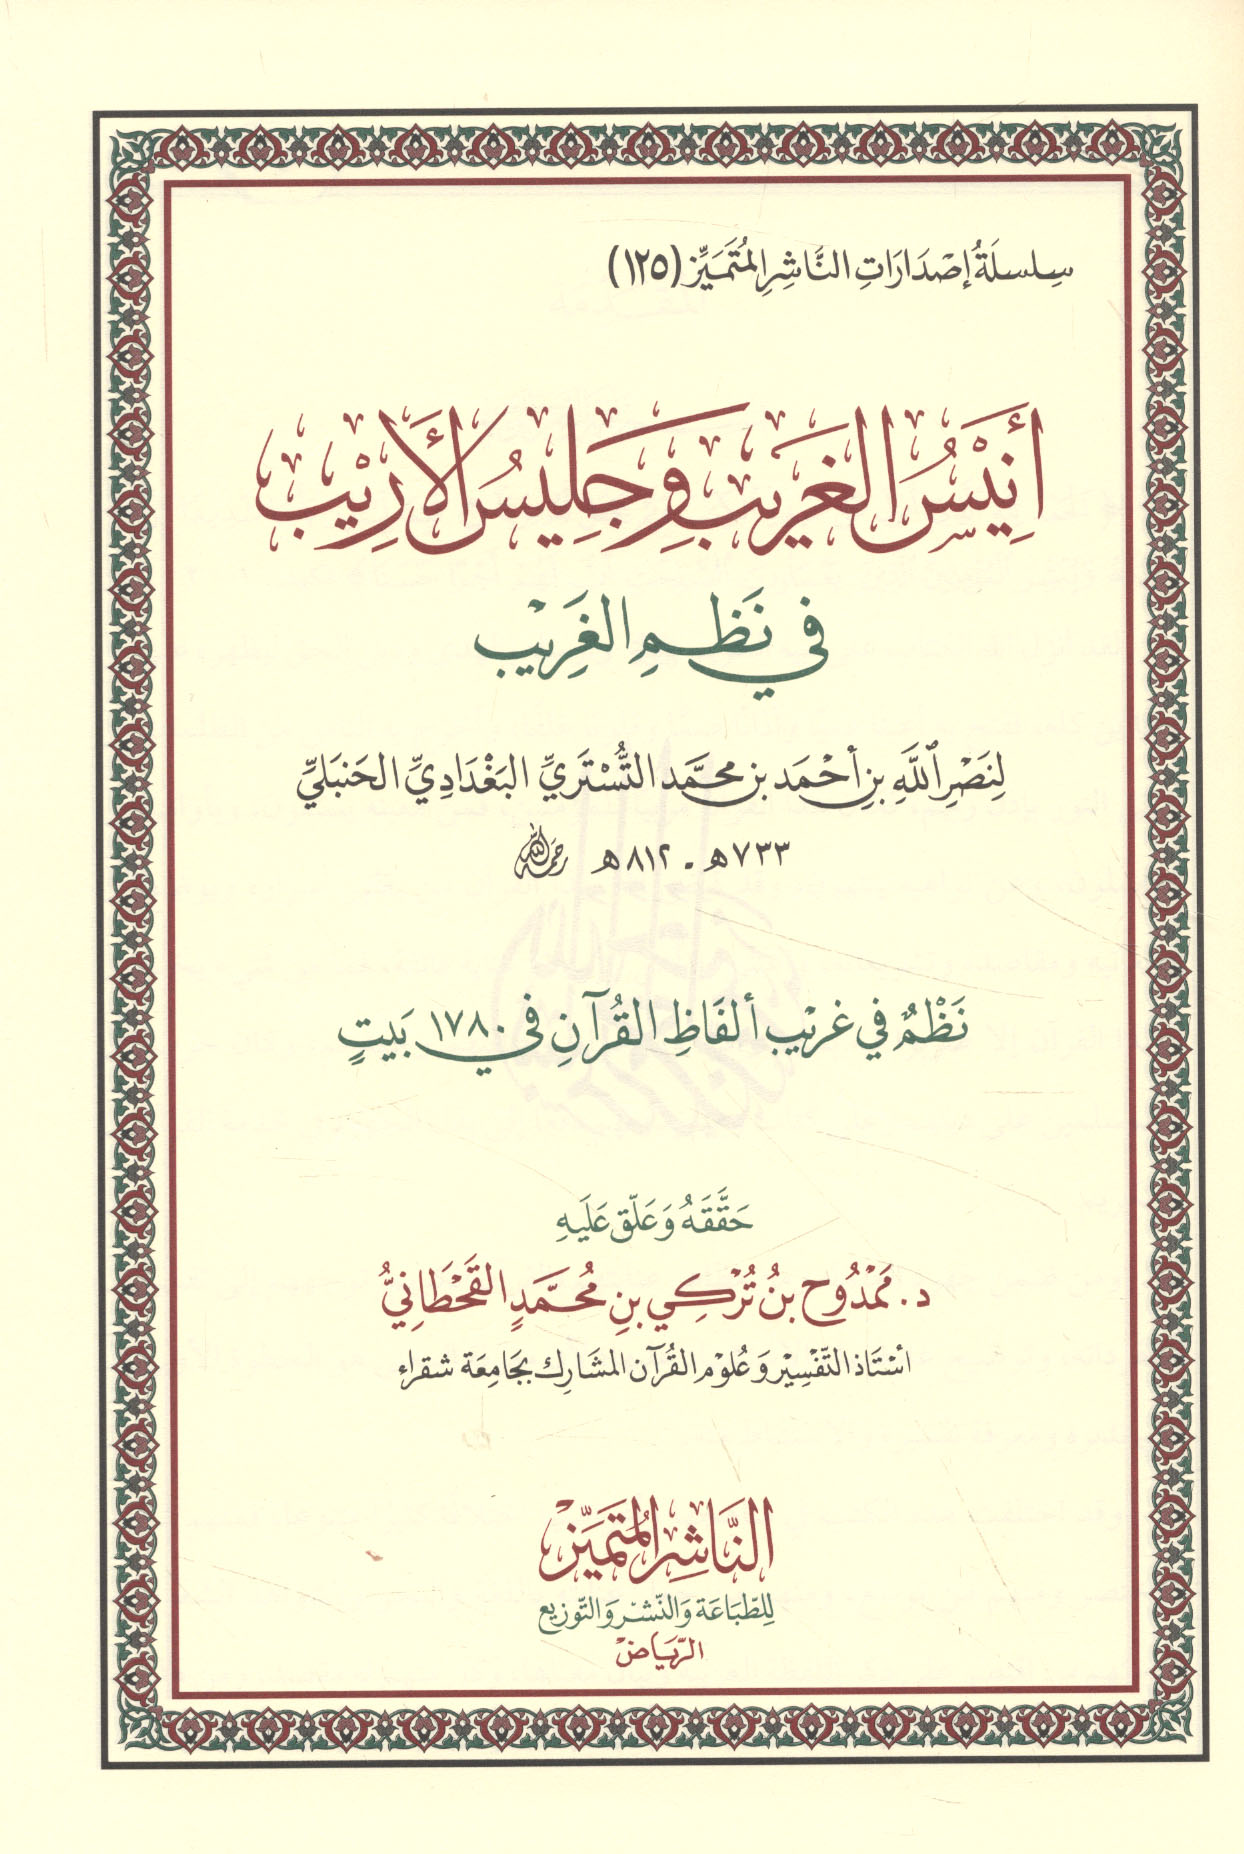 سِلسلَةُ إصْدَارَاتِ النَّاشِرِ المُتَمَيِّز (١٢٥)
أَنِيْسُ الغَرِيْبِ وَجَلِيْسُ الأَرِيْبِ
فِي نَظْمِ الغَرِيْبِ
لِنَصْرِ ٱللَّهِ بنِ أَحْمَد بن محمَّد التُّسْتَرِيِّ البَغْدَادِيِّ الحَنبَليِّ
٧٣٣هـ - ٨١٢هـ رحمه الله
نَظْمٌ في غَرِيْب ألفَاظِ القُرآنِ في ١٧٨٠ بَيتٍ
حَقَّقَهُ وَعَلّق عَلَيهِ
د. مَمْدُوح بنُ تُرْكِي بنِ مُحَمَّدٍ القَحْطَانِيُّ
أسْتَاذ التَّفْسِيْر وَعُلوْم القُرآن المشَارِك بجَامِعَة شقراء
النَّاشِر المُتَمَيِّز
لِلطِّبَاعَة وَالنَّشْر وَالتَّوْزِيع
الرِّيَاض